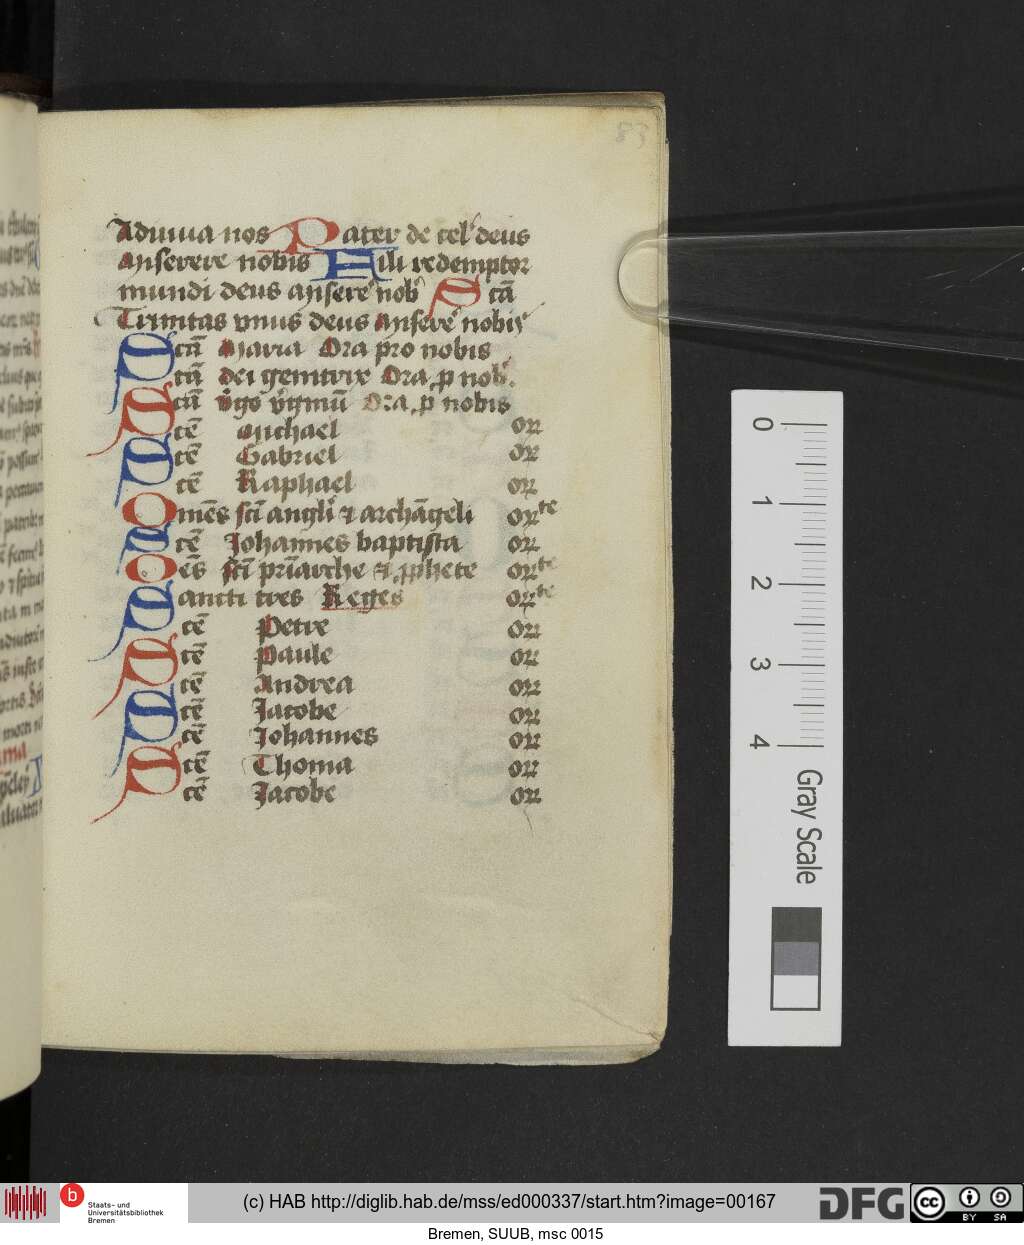 83
Adiuua nos Pater de cel' deus
Miserere nobis Fili redemptor
mundi deus misere' nob' Scā
Trinitas vnus deus Misere' nobis
Scā Maria Ora pro nobis
Scā dei genitrix Ora p nob'.
Scā v̄go v̄ginū Ora p nobis
Scē Michael or
Scē Gabriel or
Scē Raphael or
Omēs sc̄i angli ⁊ archāgeli orte
Scē Johannes baptista or
Oēs sc̄i pr̄iarche ⁊ pphete orte
Sancti tres Reges orte
Scē Petre or
Scē Paule or
Scē Andrea or
Scē Jacobe or
Scē Johannes or
Scē Thoma or
Scē Jacobe or
0
1
2
3
4
Gray Scale
b
Staats- und
Universitätsbibliothek
Bremen
(c) HAB http://diglib.hab.de/mss/ed000337/start.htm?image=00167
DFG
cc
BY SA
Bremen, SUUB, msc 0015